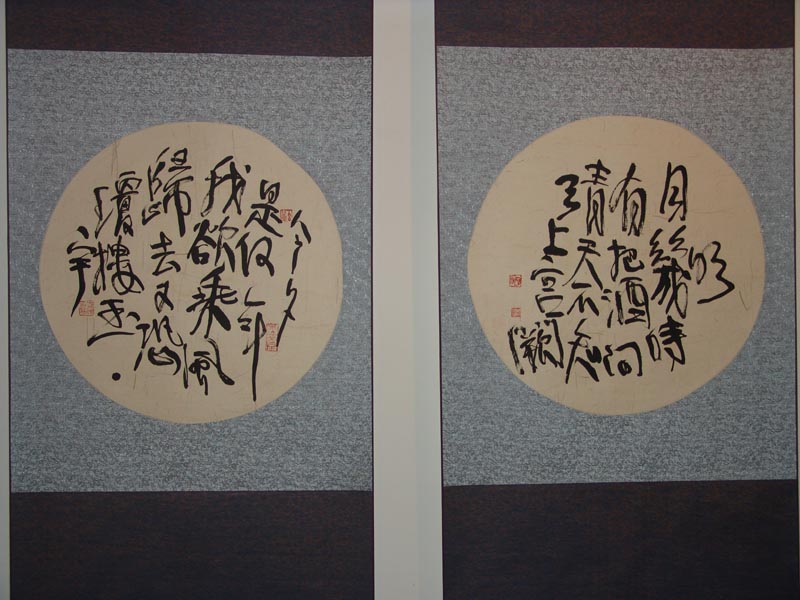 明
月幾時
有把酒問
青天不知
天上宮闕
今夕
是何年
我欲乘風
歸去又恐
瓊樓玉
宇